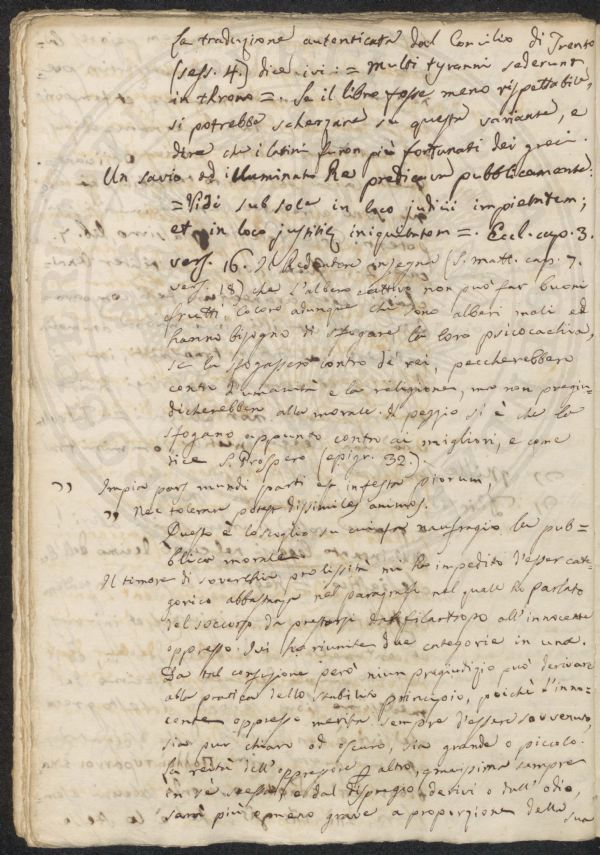 La traduzione autenticata dal Concilio di Trento
(sess. 4.) dice ivi: = Multi tyranni sederunt
in throno =. Se il libro fosse meno rispettabile,
si potrebbe scherzare su questa variante, e
dire che i latini furon più fortunati dei greci.
Un savio ed illuminato Re predicava pubblicamente:
= Vidi sub sole in loco judicii impietatem;
et in loco justitiæ iniquitatem =. Eccl. cap. 3.
vers. 16. Il Redentore insegna (S. Matt. cap. 7.
vers. 18) che l'albero cattivo non può far buoni
frutti. Costoro adunque che sono alberi mali ed
hanno bisogno di sfogare la loro
se la sfogassero contro de' rei, peccherebbero
contro l'umanità e la religione, ma non pregiu=
dicherebber alla morale. Il peggio si è che la
sfogano appunto contro ai migliori, e come
dice S. Prospero (epigr. 32.)
" Impia pars mundi parti est infesta piorum,
" Nec tolerare potest dissimiles animos.
Questo è lo scoglio su cui fa naufragio la pub=
blica morale.
Il timore di soverchia prolissità mi ha impedito d'esser cate=
gorico abbastanza nel paragrafo nel quale ho parlato
del soccorso da prestarsi dal filantropo all'innocente
oppresso. Ivi ho riunite due categorie in una.
Da tal però niun pregiudizio può derivare
alla pratica dello stabilito principio, poichè l'inno=
cente oppresso merita sempre d'essere sovvenuto,
sia pur chiaro od oscuro, sia grande o piccolo.
La reità dell'oppressore altro, gravissima sempre
in sè stessa, e dal dispregio derivi o dall'odio,
sarà più o meno grave a proporzione della
sua